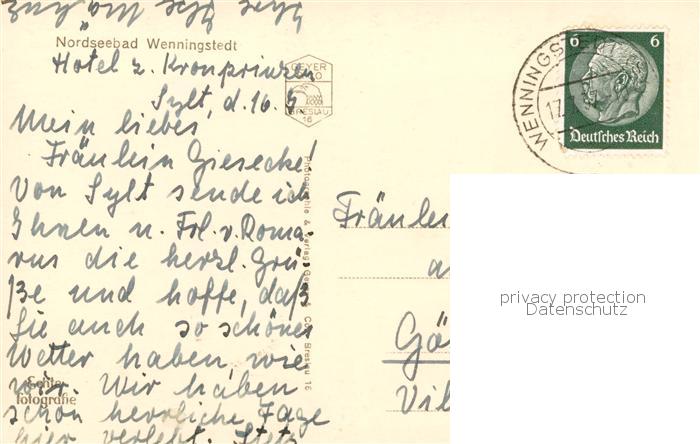 Nordseebad Wenningstedt
Hotel z. Kronprinzen
Sylt, d. 16. 9
Mein liebes
Fräulein Giesecke!
Von Sylt sende ich
Ihnen u. Frl. v. Roma
rus die herzl. Grü
ße und hoffe, daß
Sie auch so schönes
Wetter haben, wie
wir. Wir haben
schon herrliche Tage
hier verlebt. Stets
Echte
Fotografie
GEYER
BRESLAU
16
Photographie & Verlag Geyer & Co., Breslau 16
WENNINGSTEDT
17.
6 6
Deutsches Reich
Fräulei
a
Gö
Vil
privacy protection
Datenschutz